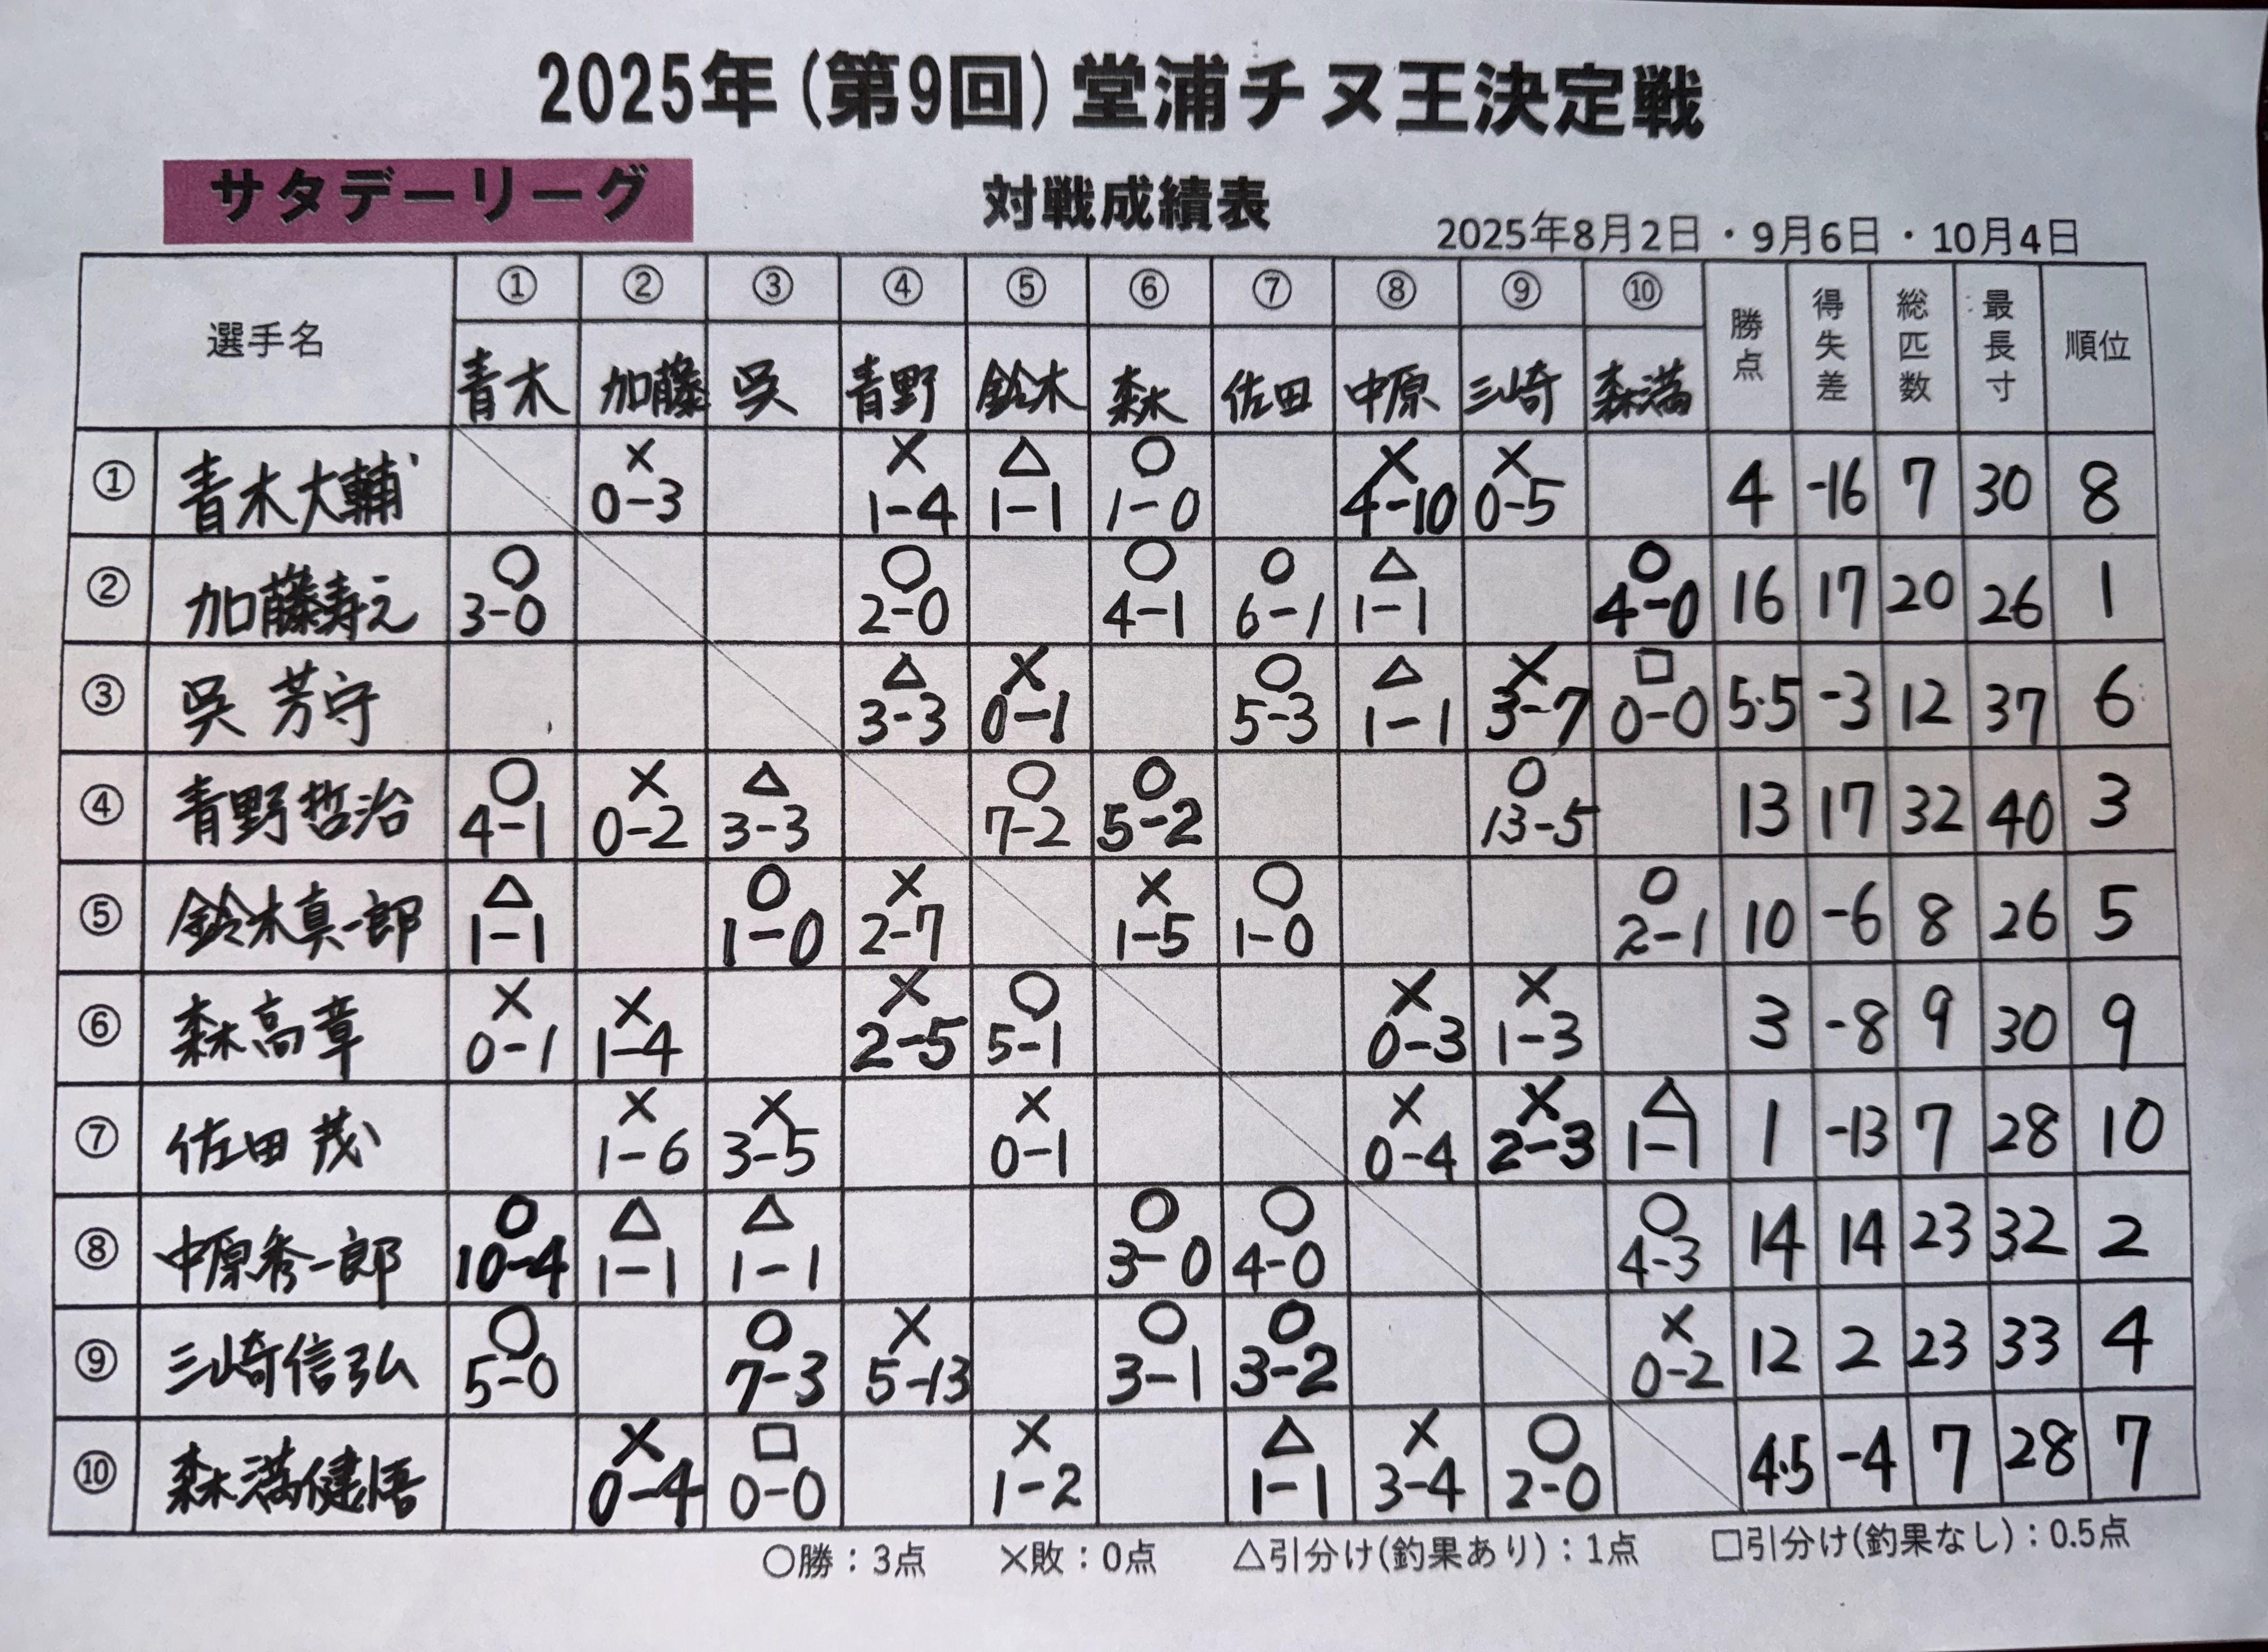 2025年(第9回)堂浦チヌ王決定戦
サタデーリーグ
対戦成績表
2025年8月2日・9月6日・10月4日
選手名 ① ② ③ ④ ⑤ ⑥ ⑦ ⑧ ⑨ ⑩ 勝点 得失差 総匹数 最長寸 順位
青木 加藤 呉 青野 鈴木 森 佐田 中原 三崎 森満
① 青木大輔 × 0-3 × 1-4 △ 1-1 ○ 1-0 × 4-10 × 0-5 4 -16 7 30 8
② 加藤寿え ○ 3-0 ○ 2-0 ○ 4-1 ○ 6-1 △ 1-1 ○ 4-0 16 17 20 26 1
③ 呉 芳守 △ 3-3 × 0-1 ○ 5-3 △ 1-1 × 3-7 □ 0-0 5.5 -3 12 37 6
④ 青野哲治 ○ 4-1 × 0-2 △ 3-3 ○ 7-2 ○ 5-2 ○ 13-5 13 17 32 40 3
⑤ 鈴木真一郎 △ 1-1 ○ 1-0 × 2-7 × 1-5 ○ 1-0 ○ 2-1 10 -6 8 26 5
⑥ 森高章 × 0-1 × 1-4 × 2-5 ○ 5-1 × 0-3 × 1-3 3 -8 9 30 9
⑦ 佐田 茂 × 1-6 × 3-5 × 0-1 × 0-4 × 2-3 △ 1-1 1 -13 7 28 10
⑧ 中原秀一郎 ○ 10-4 △ 1-1 △ 1-1 ○ 3-0 ○ 4-0 ○ 4-3 14 14 23 32 2
⑨ 三崎信弘 ○ 5-0 ○ 7-3 × 5-13 ○ 3-1 ○ 3-2 × 0-2 12 2 23 33 4
⑩ 森満健悟 × 0-4 □ 0-0 × 1-2 △ 1-1 × 3-4 ○ 2-0 4.5 -4 7 28 7
○勝：3点 ×敗：0点 △引分け(釣果あり)：1点 □引分け(釣果なし)：0.5点